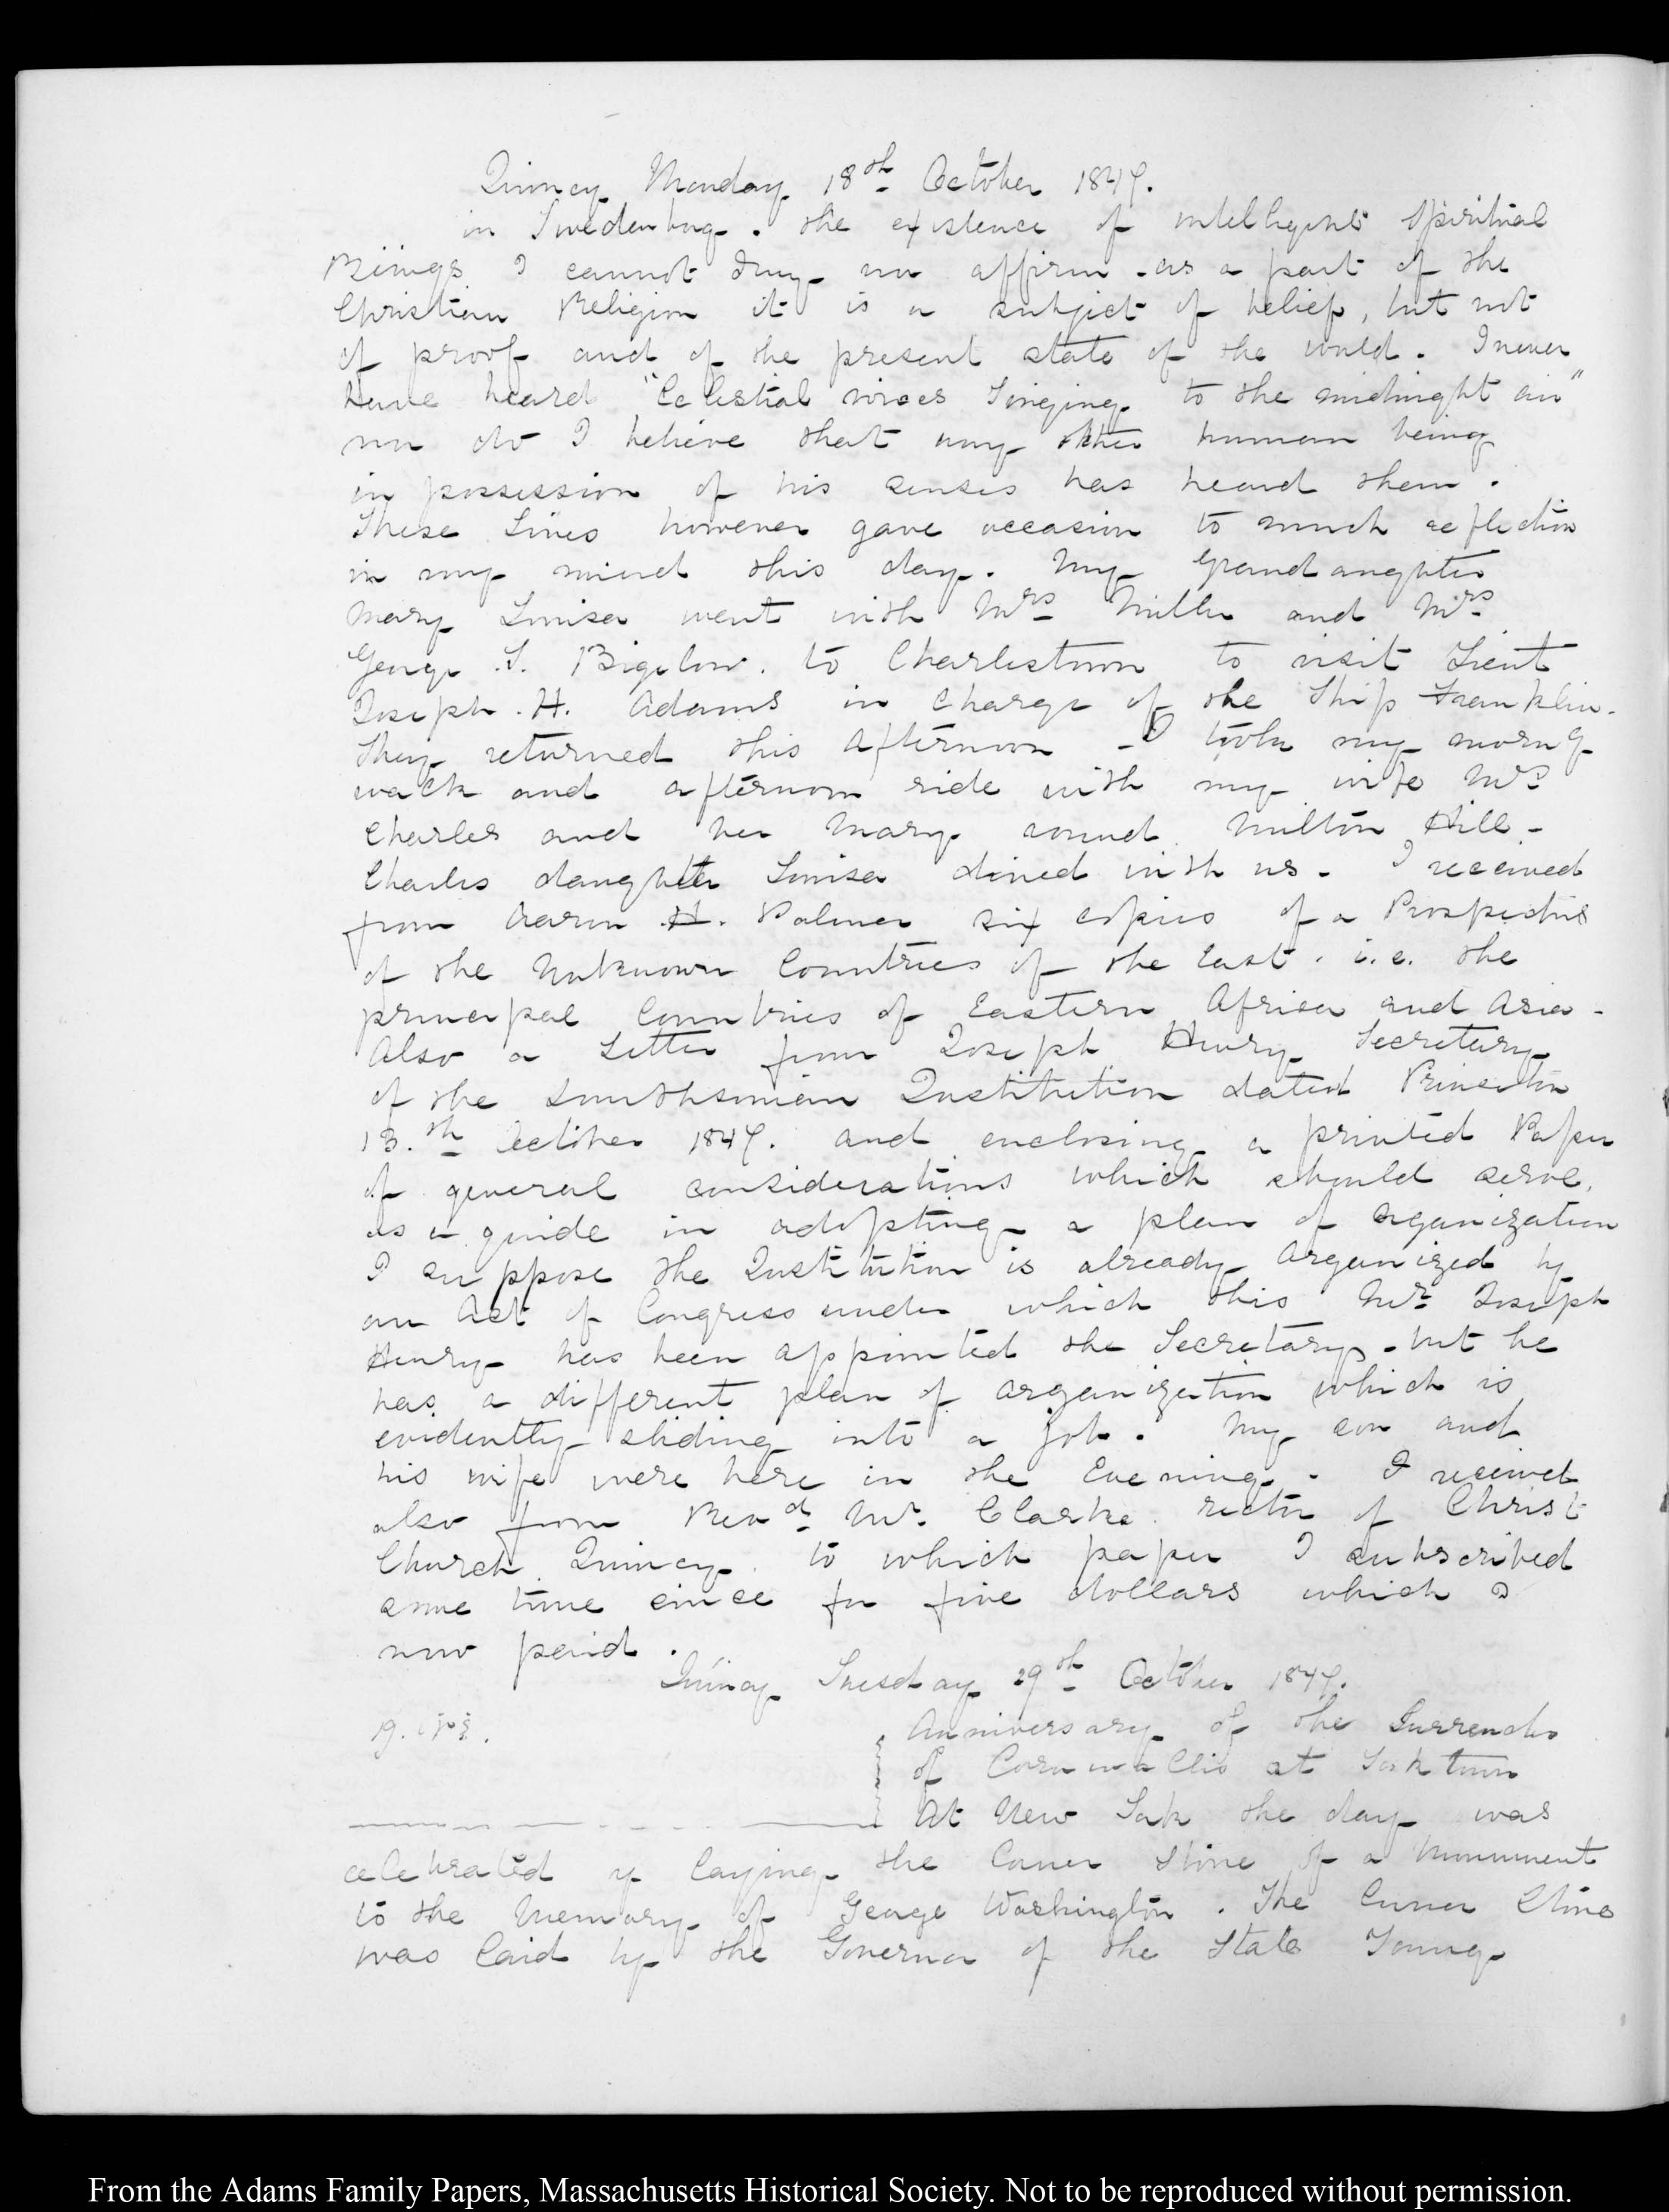 Quincy Monday 18th October 1847.
in Swedenborg. The existence of intelligent Spiritual
Beings I cannot deny nor affirm. as a part of the
Christian Religion it is a subject of belief, but not
of proof and of the present state of the world. I never
have heard "Celestial voices Singing to the midnight air"
nor do I believe that any other human being
in possession of his senses has heard them.
These Lines however gave occasion to much reflection
in my mind this day. My Grandaughter
Mary Louisa went with Mrs Miller and Mrs
George T. Bigelow. to Charlestown to visit Lieut
Joseph. H. Adams in charge of the Ship Franklin.
They returned this afternoon - I took my morng
walk and afternoon ride with my wife Mrs
Charles and her Mary round Milton Hill-
Charles daughter Louisa dined with us. I received
from Aaron H. Palmer six copies of a Prospectus
of the Unknown Countries of the East. i.e. the
principal Countries of Eastern Africa and Asia.
Also a Letter from Joseph Henry Secretary
of the Smithsonian Institution dated Princeton
13.th October 1847. and enclosing a printed Paper
of general considerations which should serve
as a guide in adopting a plan of organization
I suppose the Institution is already organized by
an Act of Congress under which this Mr Joseph
Henry has been appointed the Secretary. but he
has a different plan of organization which is
evidently sliding into a job. My son and
his wife were here in the Evening. I received
also from Revd Mr. Clarke rector of Christ
Church Quincy to which paper I subscribed
some time since for five dollars which I
now paid.
Quincy Tuesday 29th October 1847.
19.
Anniversary of the Surrender
of Cornwallis at Yorktown
At New York the day was
celebrated by laying the Corner Stone of a Monument
to the Memory of George Washington. The Corner Stone
was laid by the Governor of the State Young
From the Adams Family Papers, Massachusetts Historical Society. Not to be reproduced without permission.